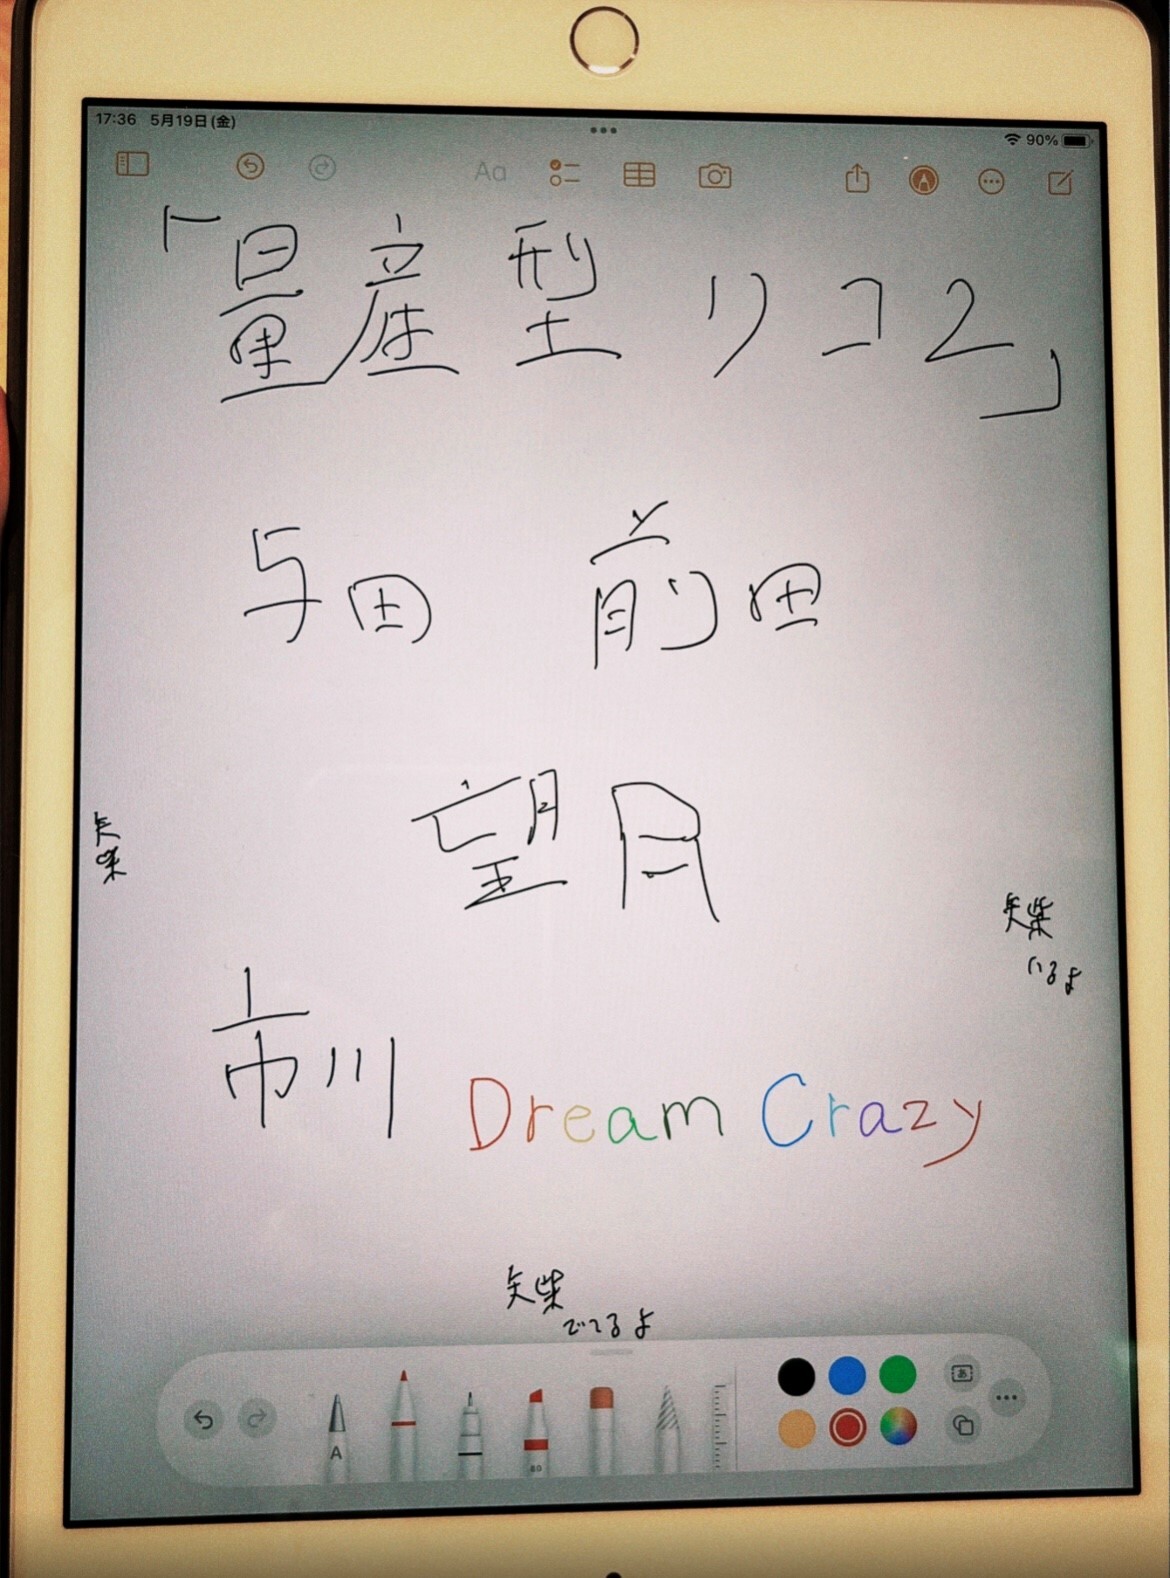 17:36 5月19日(金)
90%
Aa
「量産型リコ2」
与田 前田
望月
矢柴
矢柴
いるよ
市川
Dream Crazy
矢柴
でてるよ
A
80
あ